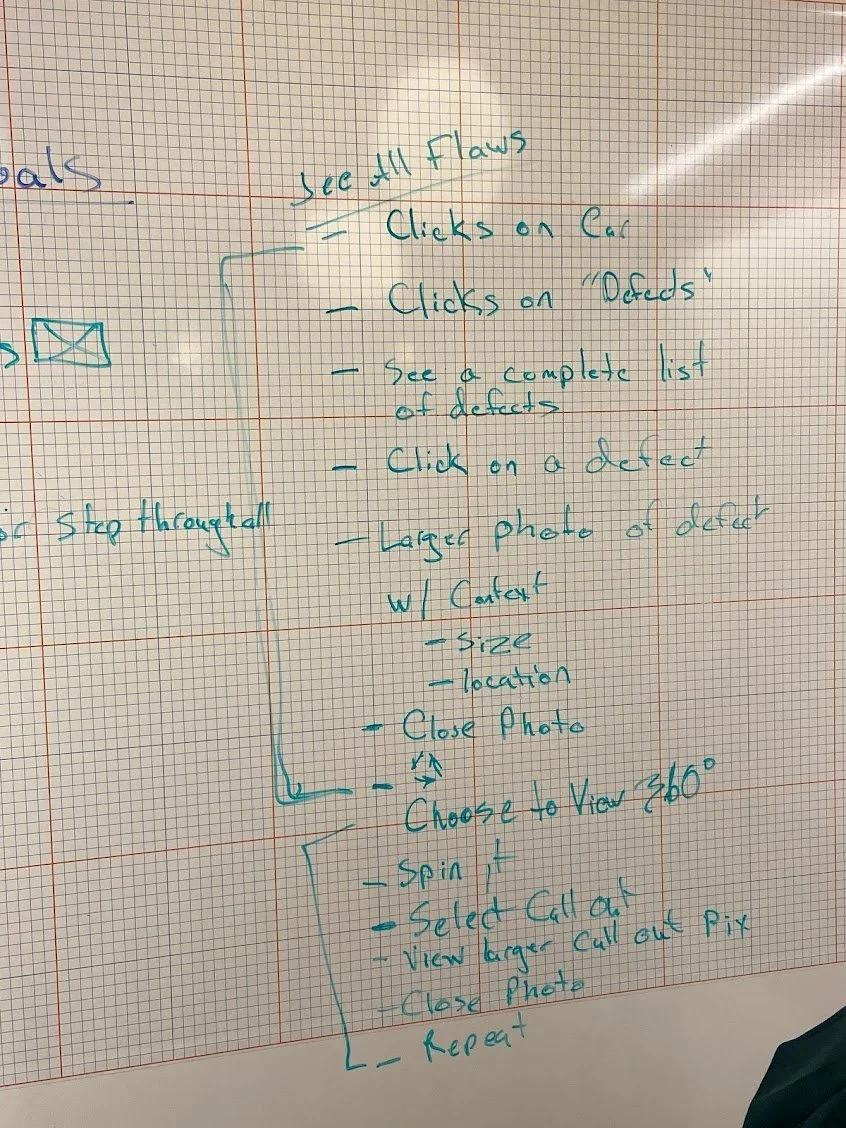 See All Flaws
= Clicks on Car
- Clicks on "Defects"
- See a complete list
of defects
- Click on a defect
- Larger photo of defect
w/ Context
- Size
- location
- Close Photo
-
Choose to View 360°
- Spin it
- Select Call out
- View larger Call out Pix
- Close Photo
- Repeat
als
s
step through all